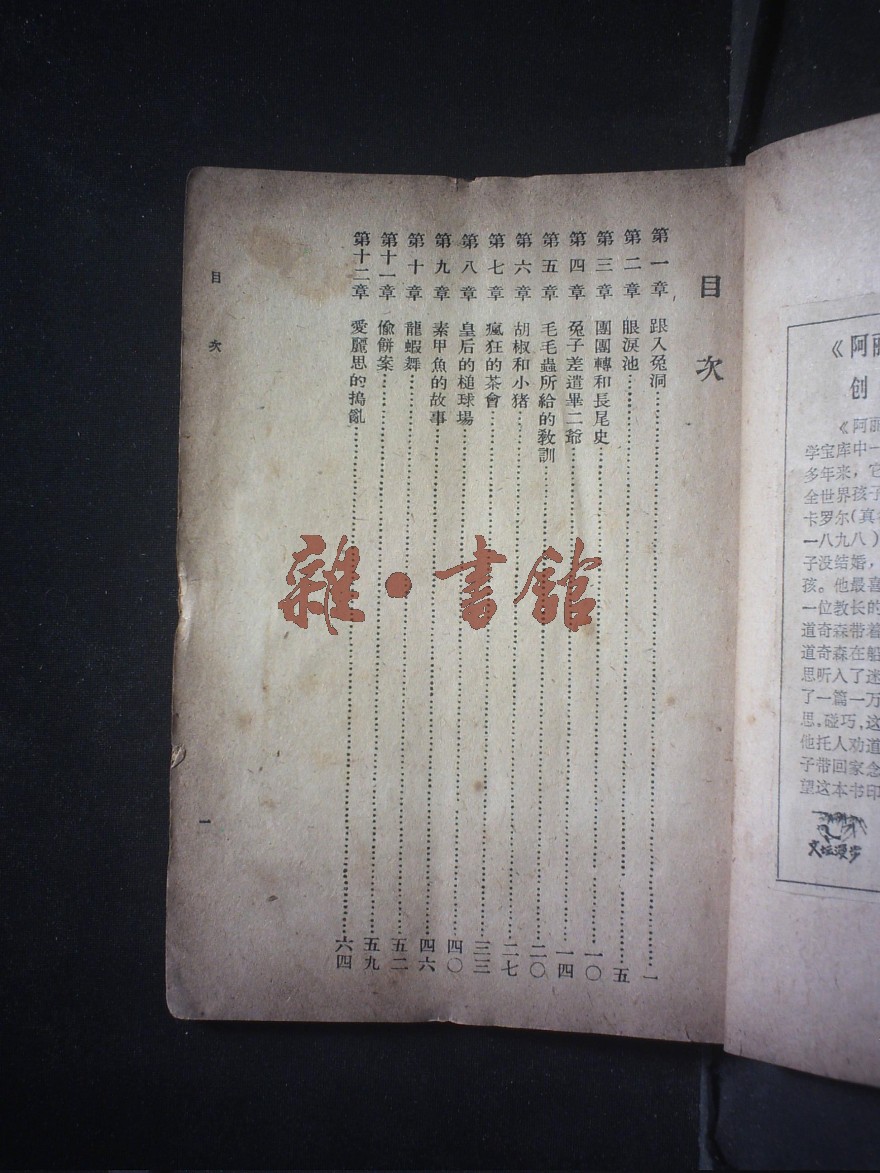 目次
第一章 跟入兔洞 一
第二章 眼淚池 五
第三章 團團轉和長尾史 一〇
第四章 兔子差遣畢二爺 一四
第五章 毛毛蟲所給的教訓 二〇
第六章 胡椒和小猪 二七
第七章 瘋狂的茶會 三三
第八章 皇后的槌球場 四〇
第九章 素甲魚的故事 四六
第十章 龍蝦舞 五二
第十一章 偸餅案 五九
第十二章 愛麗思的搗亂 六四
目次
一
雜·書館
《阿丽
创
《阿丽
学宝库中一
多年来，它
全世界孩子
卡罗尔(真
一八九八)
子没结婚，
孩。他最喜
一位教长的
道奇森带着
道奇森在船
思听入了迷
了一篇一万
思。碰巧，这
他托人劝道
子带回家念
望这本书印
文坛漫步